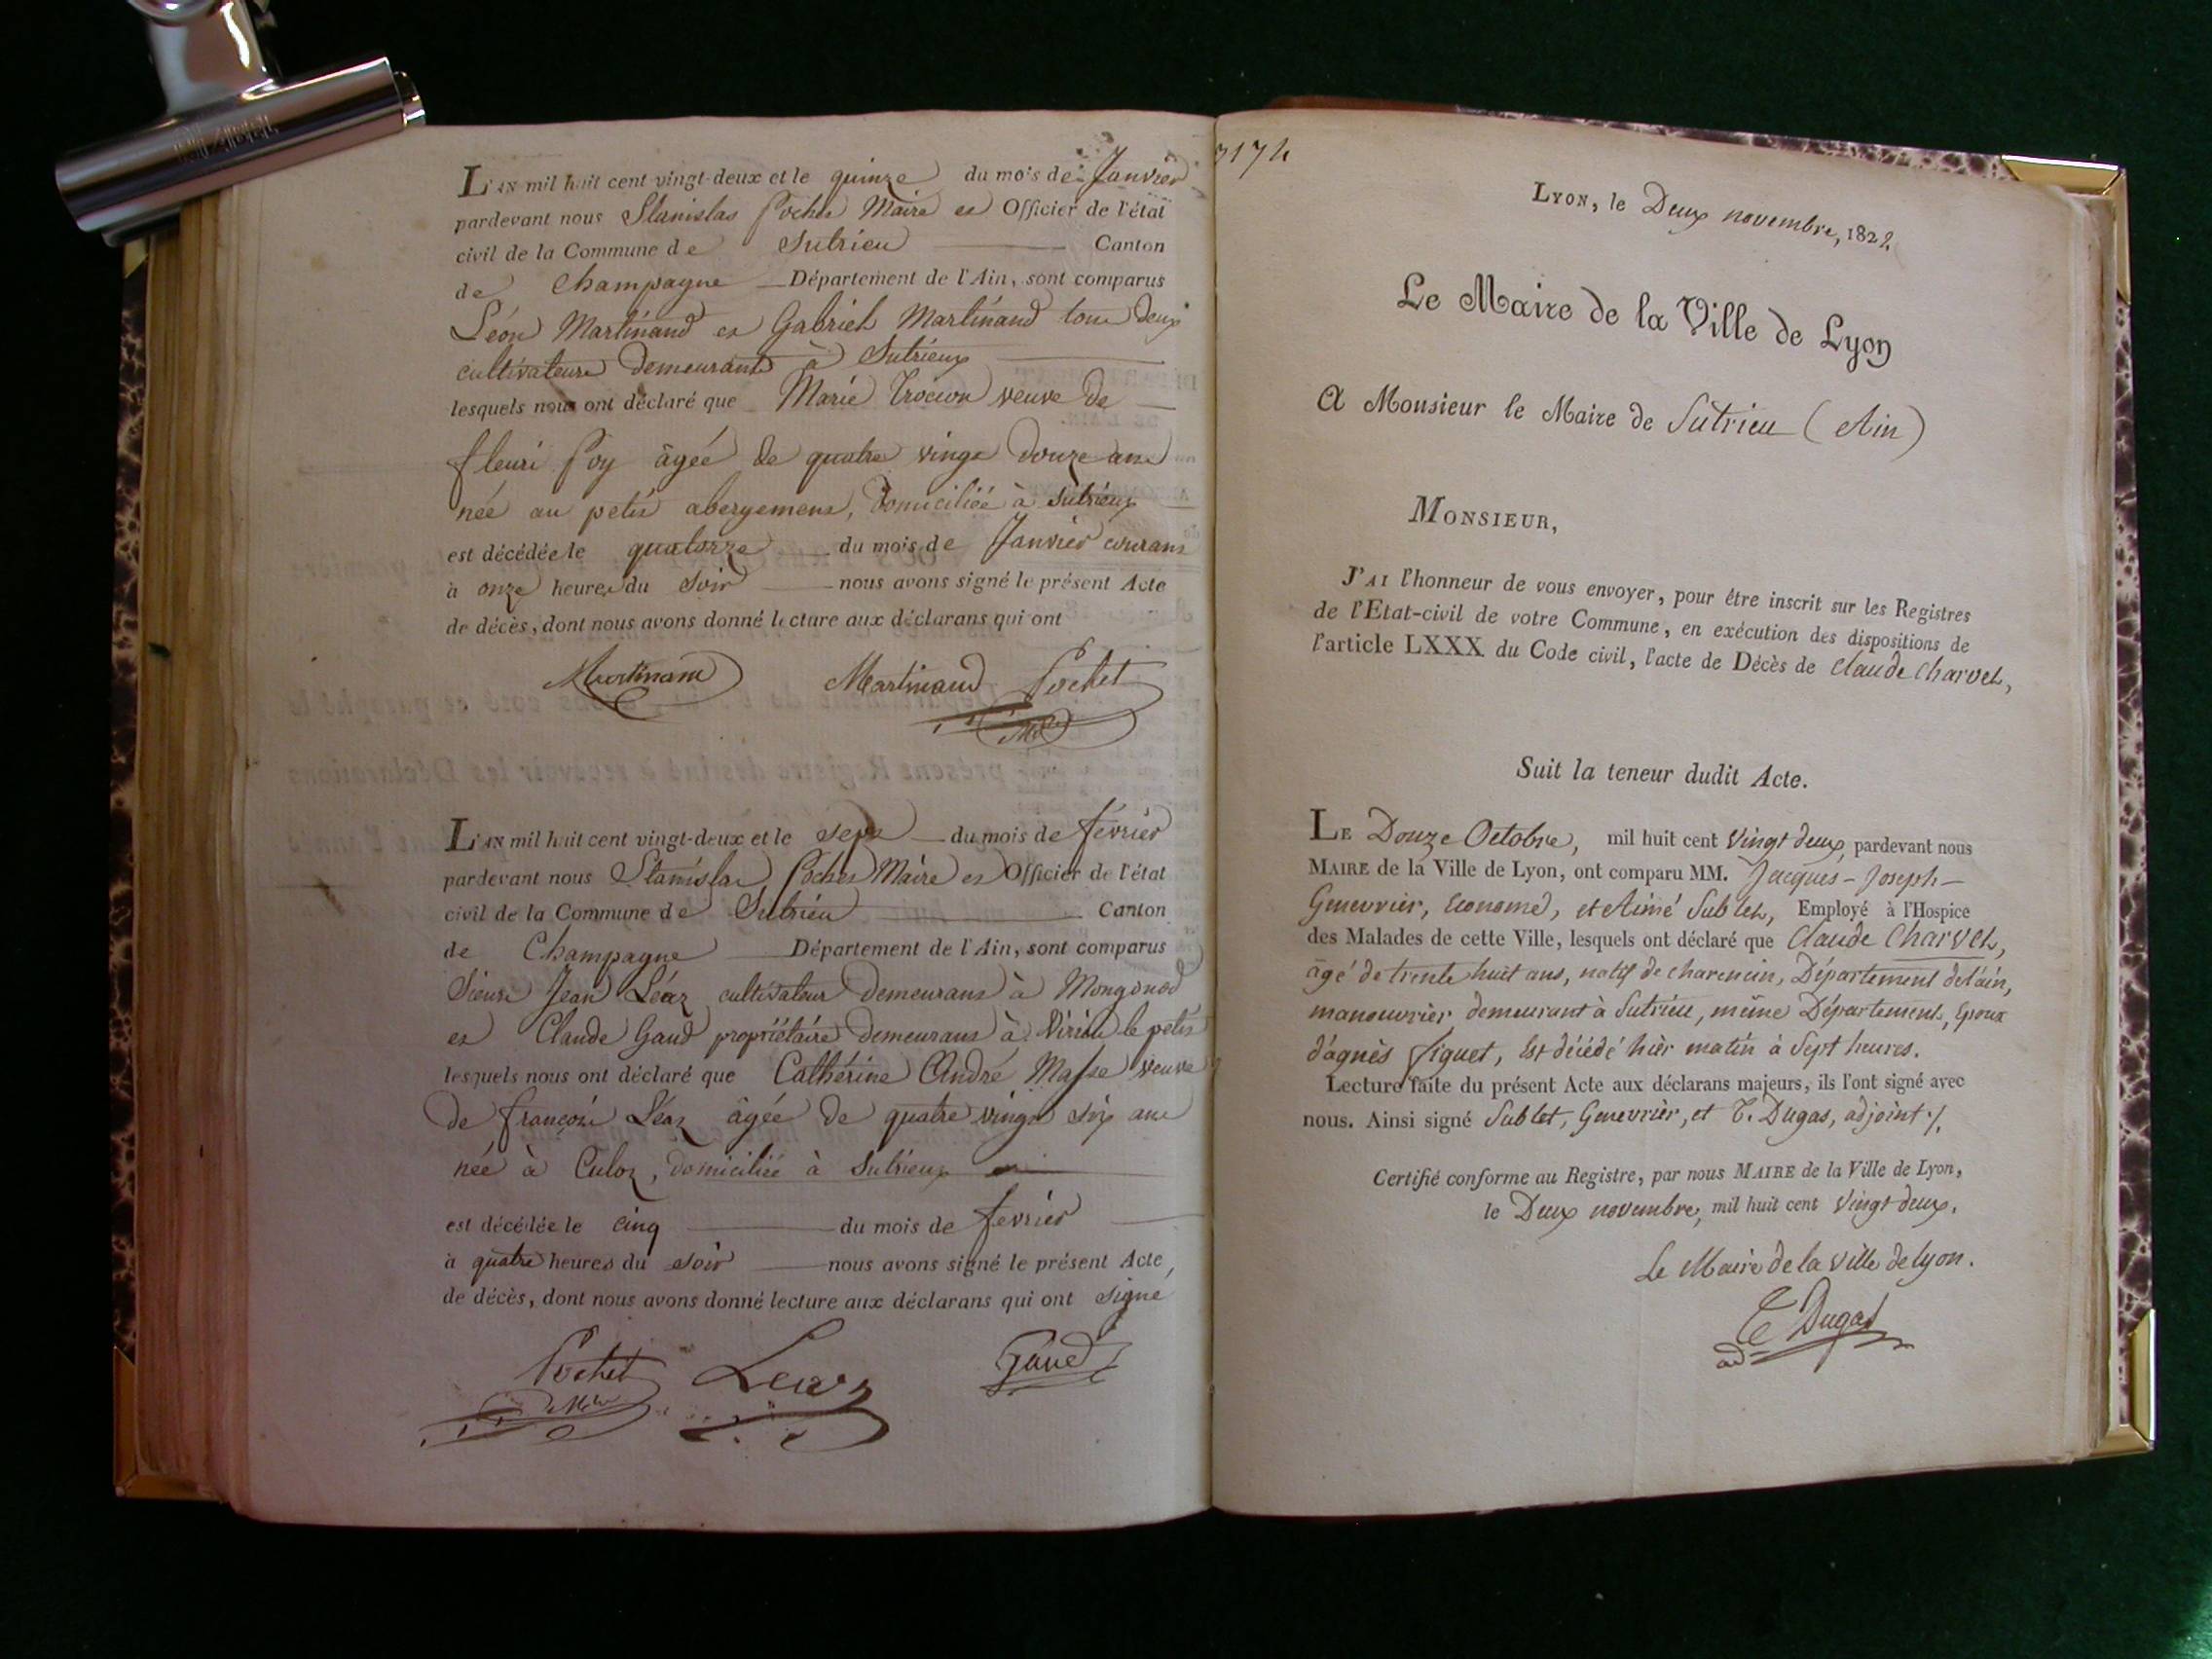 L'AN mil huit cent vingt-deux et le quinze du mois de Janvier
pardevant nous Stanislas Pochet Maire et Officier de l'état
civil de la Commune de Sutrieu Canton
de Champagne Département de l'Ain, sont comparus
Léon Martinand et Gabriel Martinand tous deux
cultivateurs demeurants à Sutrieux
lesquels nous ont déclaré que Marie veuve de
fleuri Poy âgée de quatre vingt douze ans
née au petit abergement, domiciliée à Sutrieux
est décédée le quatorze du mois de Janvier courant
à onze heures du soir nous avons signé le présent Acte
de décès, dont nous avons donné lecture aux déclarans qui ont
Martinand Martinand Pochet
L'AN mil huit cent vingt-deux et le sept du mois de fevrier
pardevant nous Stanislas Pochet Maire et Officier de l'état
civil de la Commune de Sutrieu Canton
de Champagne Département de l'Ain, sont comparus
Sieurs Jean Léaz cultivateur demeurant à Mongonod
et Claude Gaud propriétaire demeurant à Virieu le petit
lesquels nous ont déclaré que Cathérine André Masse veuve
de françois Léaz âgée de quatre vingt six ans
née à Culoz, domiciliée à Sutrieux
est décédée le cinq du mois de fevrier
à quatre heures du soir nous avons signé le présent Acte
de décès, dont nous avons donné lecture aux déclarans qui ont signé
Pochet Leaz Gaud
Lyon, le Deux novembre, 1822.
Le Maire de la Ville de Lyon
A Monsieur le Maire de Sutrieu (Ain)
MONSIEUR,
J'AI l'honneur de vous envoyer, pour être inscrit sur les Registres
de l'Etat-civil de votre Commune, en exécution des dispositions de
l'article LXXX du Code civil, l'acte de Décès de Claude Charvet,
Suit la teneur dudit Acte.
LE Douze Octobre, mil huit cent vingt deux, pardevant nous
MAIRE de la Ville de Lyon, ont comparu MM. Jacques-Joseph-
Genevrier, Econome, et Aimé Sublet, Employé à l'Hospice
des Malades de cette Ville, lesquels ont déclaré que Claude Charvet,
âgé de trente huit ans, natif de charencin, Département de l'ain,
manouvrier demeurant à Sutrieu, même Département, Epoux
d'agnès figuet, Est décédé hier matin à Sept heures.
Lecture faite du présent Acte aux déclarans majeurs, ils l'ont signé avec
nous. Ainsi signé Sublet, Genevrier, et T. Dugas, adjoint
Certifié conforme au Registre, par nous MAIRE de la Ville de Lyon,
le Deux novembre, mil huit cent vingt deux.
Le Maire de la ville de Lyon.
T Dugas
ad